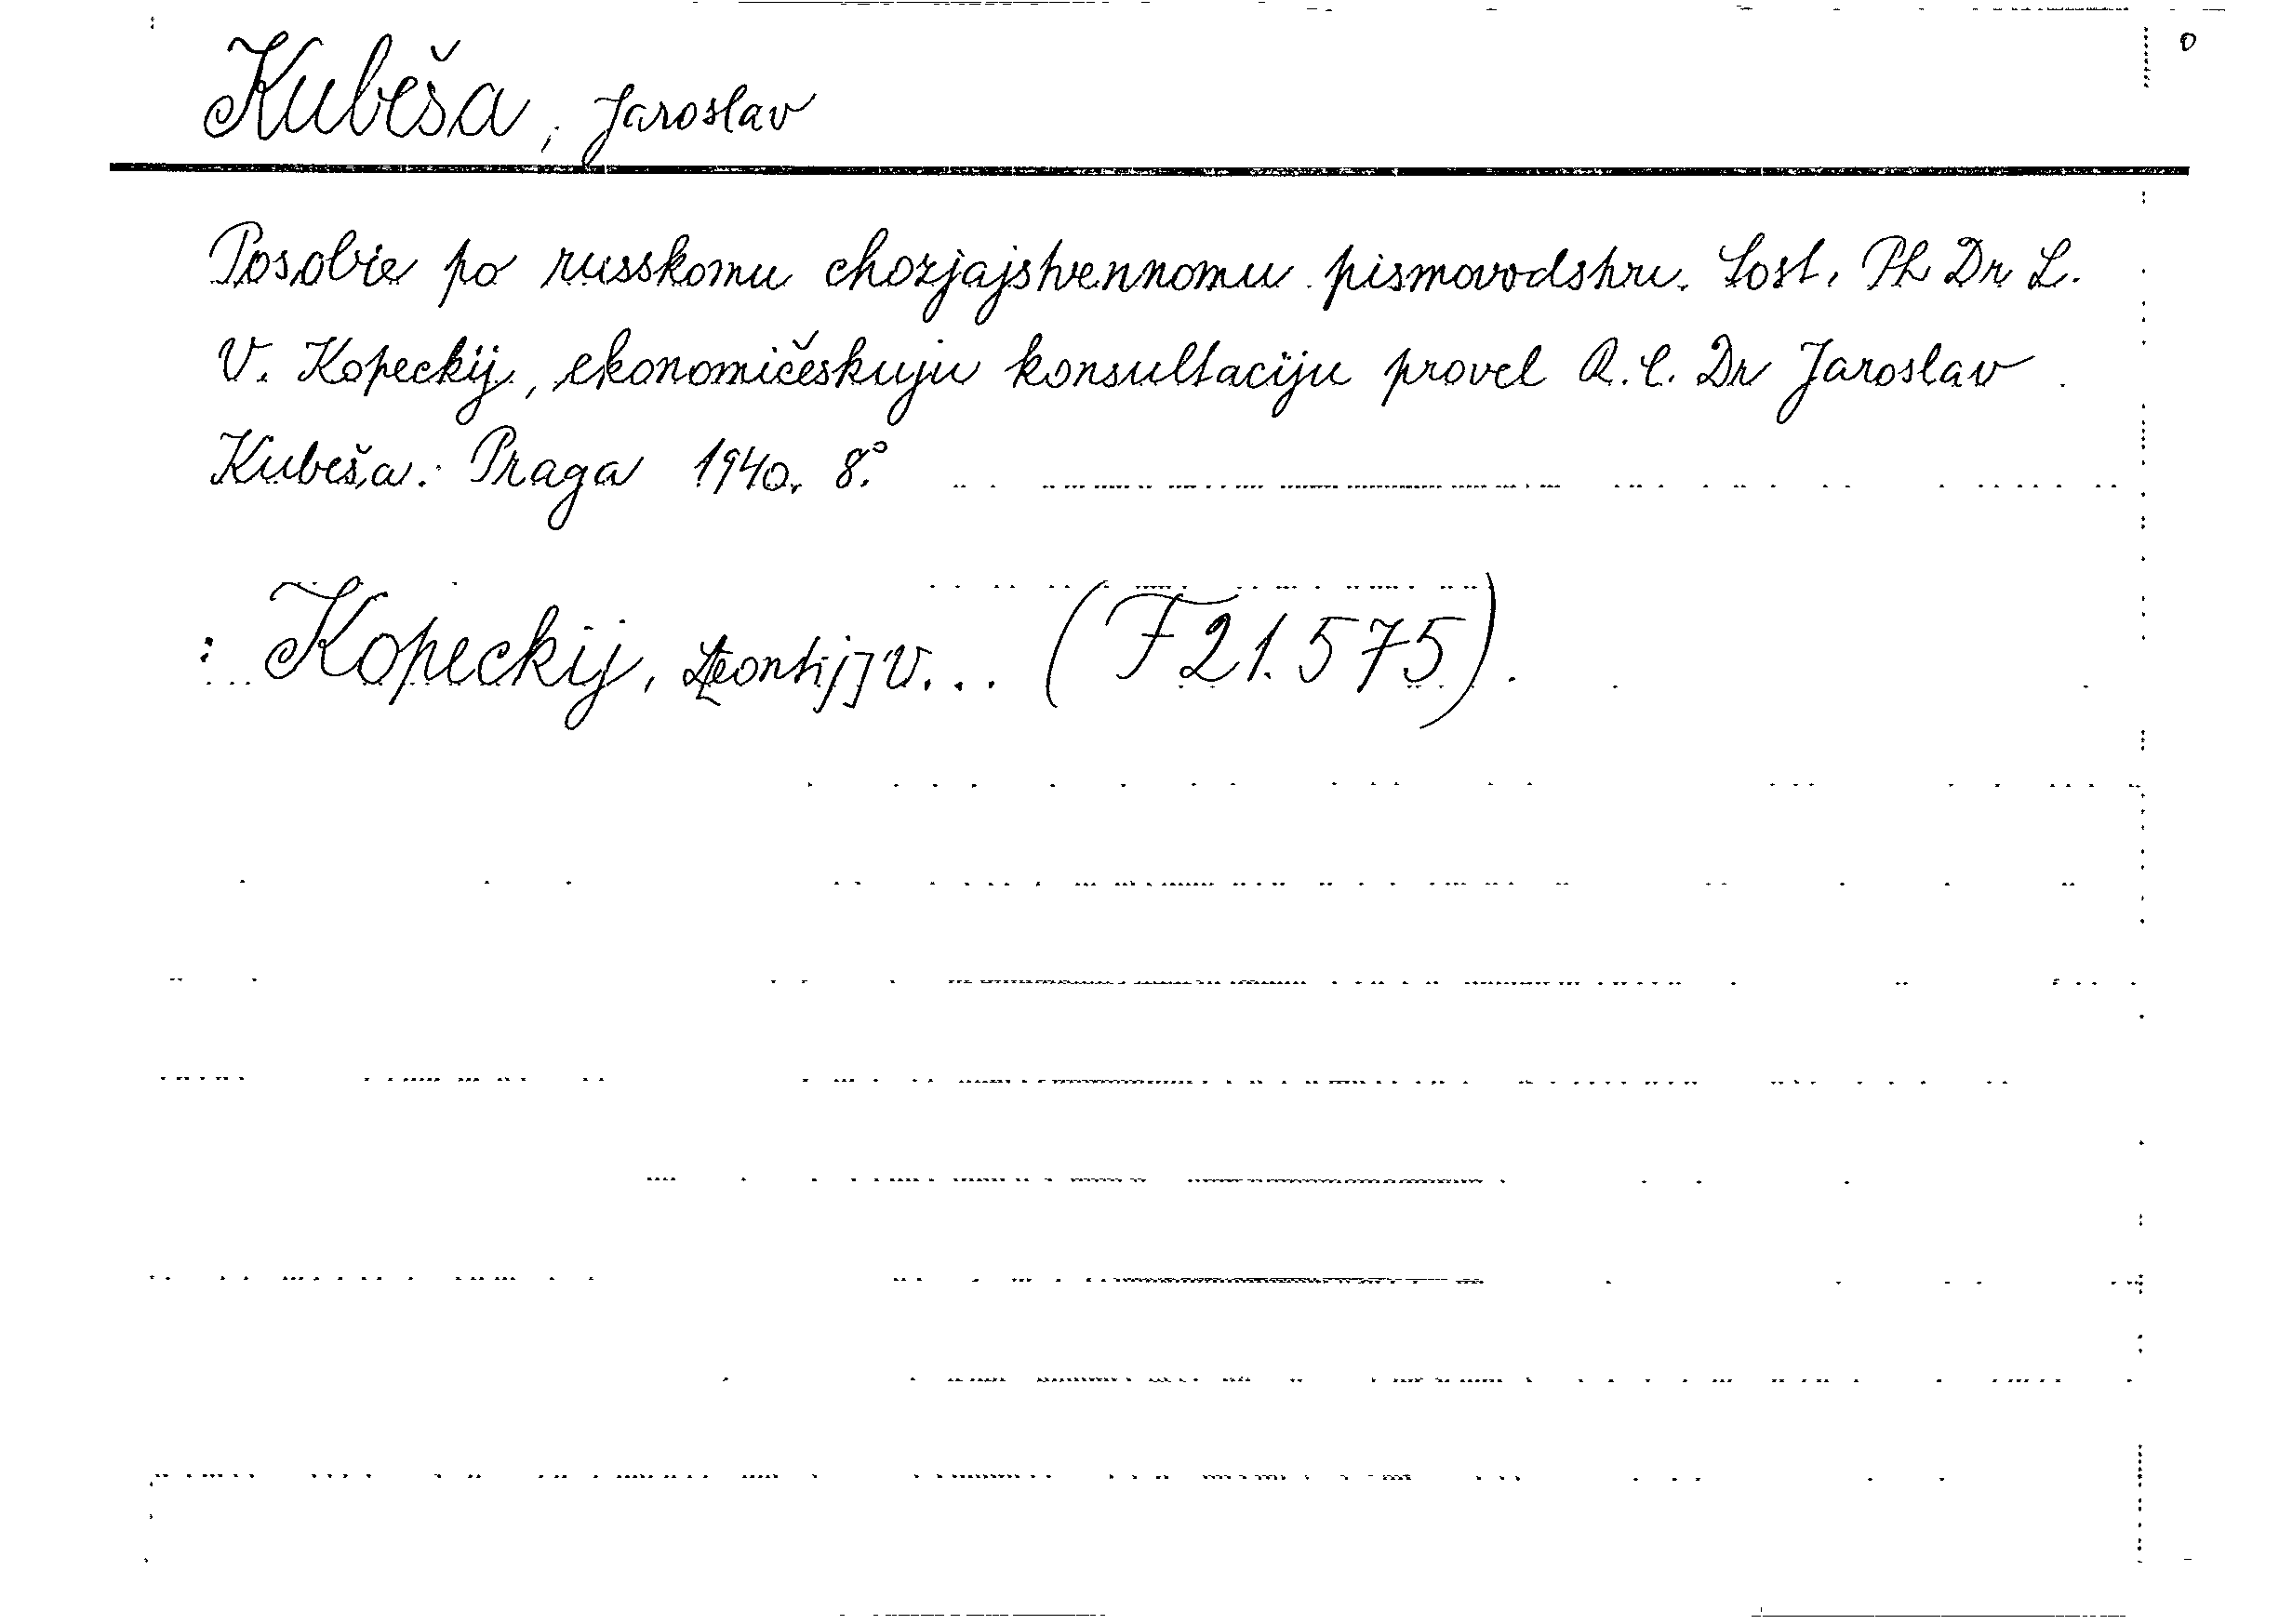 Kubeša, Jaroslav
Posobie po russkomu chozjajstvennomu pismovodstvu. Sost. Ph Dr L.
V. Kopeckij, ekonomičeskuju konsultaciju provel R. C. Dr Jaroslav
Kubeša. Praga 1940. 8°
: Kopeckij, L[eontij] V... (F 21.575).